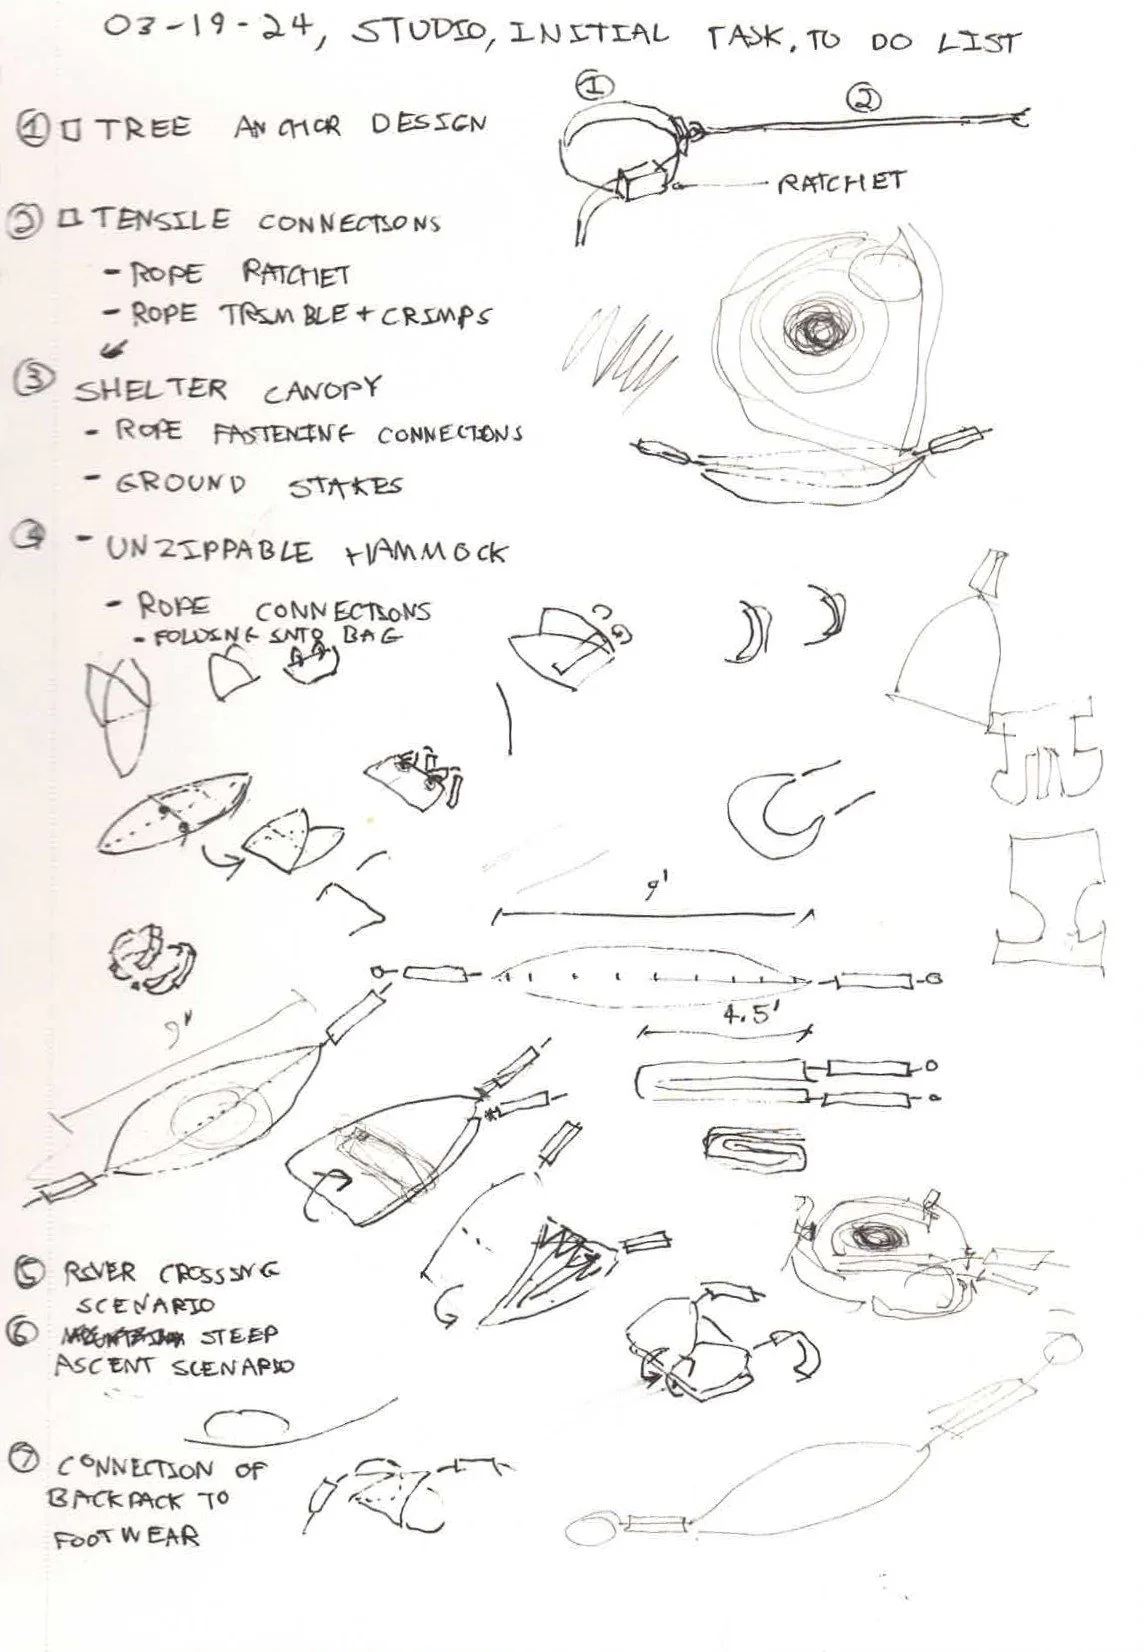 03-19-24, STUDIO, INITIAL TASK, TO DO LIST
① □ TREE ANCHOR DESIGN
① ②
RATCHET
② □ TENSILE CONNECTIONS
- ROPE RATCHET
- ROPE TRIMBLE + CRIMPS
③ SHELTER CANOPY
- ROPE FASTENING CONNECTIONS
- GROUND STAKES
④ - UNZIPPABLE HAMMOCK
- ROPE CONNECTIONS
- FOLDING INTO BAG
9'
4.5'
9'
⑤ RIVER CROSSING
SCENARIO
⑥ STEEP
ASCENT SCENARIO
⑦ CONNECTION OF
BACKPACK TO
FOOTWEAR